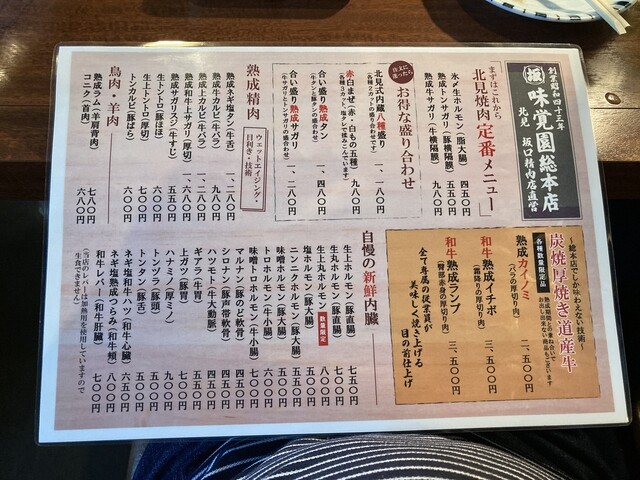 創業昭和四十三年
坂 味覚園総本店
北見 坂口精肉店直営
まずはこれから
北見焼肉「定番メニュー」
氷〆牛ホルモン(脂大腸) 四五〇円
熟成トンサガリ(豚横隔膜) 五五〇円
熟成サガリ(牛横隔膜) 九八〇円
注文に迷ったら
お得な盛り合わせ
北見式内蔵八種盛り 一、一八〇円
赤白まぜ(赤・白もの五種) 九八〇円
合い盛り熟成タン 一、四八〇円
(牛タンと豚タンの盛合わせ)
合い盛り熟成サガリ 一、二八〇円
(牛サガリとトンサガリの盛合わせ)
熟成精肉
ウェットエイジング・目利き・技術
熟成ネギ塩タン(牛舌) 一、二八〇円
熟成カルビ(牛バラ) 九八〇円
熟成上カルビ(牛バラ) 一、二八〇円
熟成和牛上サガリ(厚切) 一、六八〇円
熟成サガリスジ(牛すじ) 五五〇円
生トントロ(豚ほほ) 六〇〇円
生上トントロ(厚切) 七〇〇円
トンカルビ(豚ばら) 六〇〇円
鳥肉・羊肉
熟成ラム(羊肩背肉) 七八〇円
コニク(首肉) 六八〇円
〜総本店でしか味わえない技術〜
炭焼厚焼き道産牛
各種数量限定品
熟成期間との兼ね合いでお出し出来ない商品もございます
熟成カイノミ 二、五〇〇円
(バラの厚切り肉)
和牛熟成イチボ 三、五〇〇円
(霜降りの厚切り肉)
和牛熟成ランプ 三、五〇〇円
(臀部赤身の厚切り肉)
全て専属の従業員が
美味しく焼き上げる
目の前仕上げ
自慢の新鮮内臓
生上ホルモン(豚直腸) 七五〇円
生上丸ホルモン(豚直腸) 数量限定 八〇〇円
生丸ホルモン(豚大腸)
塩ホルモン(豚大腸) 五〇〇円
味噌ホルモン(豚大腸) 五五〇円
トロホルモン(牛小腸) 六〇〇円
味噌トロホルモン(牛小腸)
マルナン(豚のど軟骨) 四五〇円
シロナン(豚声帯軟骨) 四五〇円
ハツモト(牛大動脈) 五五〇円
ギアラ(牛胃)
上ガツ(豚胃) 五五〇円
ハナミノ(厚ミノ) 九〇〇円
トンヅラ(豚頭) 五五〇円
トンタン(豚舌)
ネギ塩和牛ハツ(牛心臓) 六五〇円
ネギ塩熟成つらみ(和牛頬) 八〇〇円
和牛レバー(和牛肝臓) 七〇〇円
(当店のレバーは加熱用を使用していますので
生食できません)